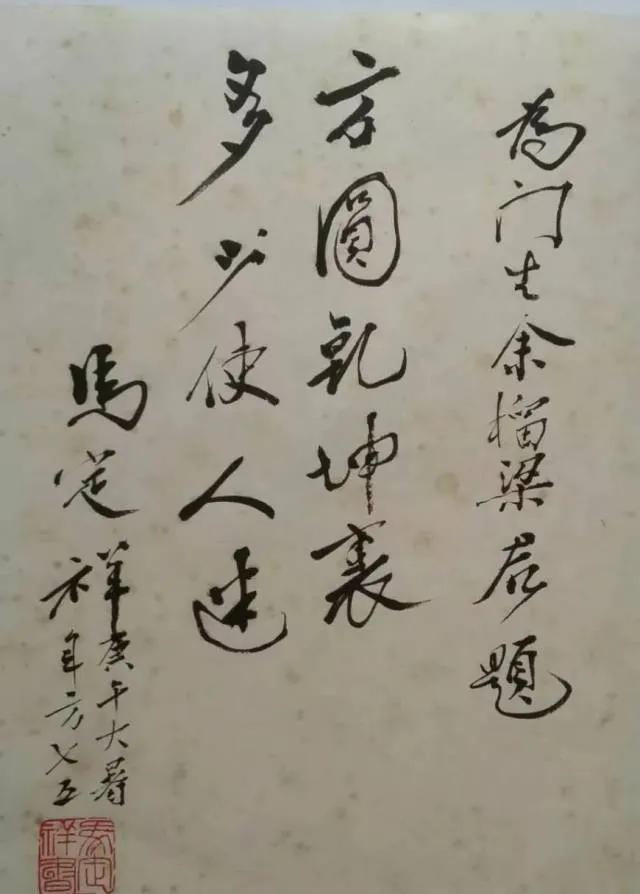 为门生余榴梁君题
方圓乾坤裏
多少使人迷
馬定祥
庚午大暑
年方七五
馬定祥書